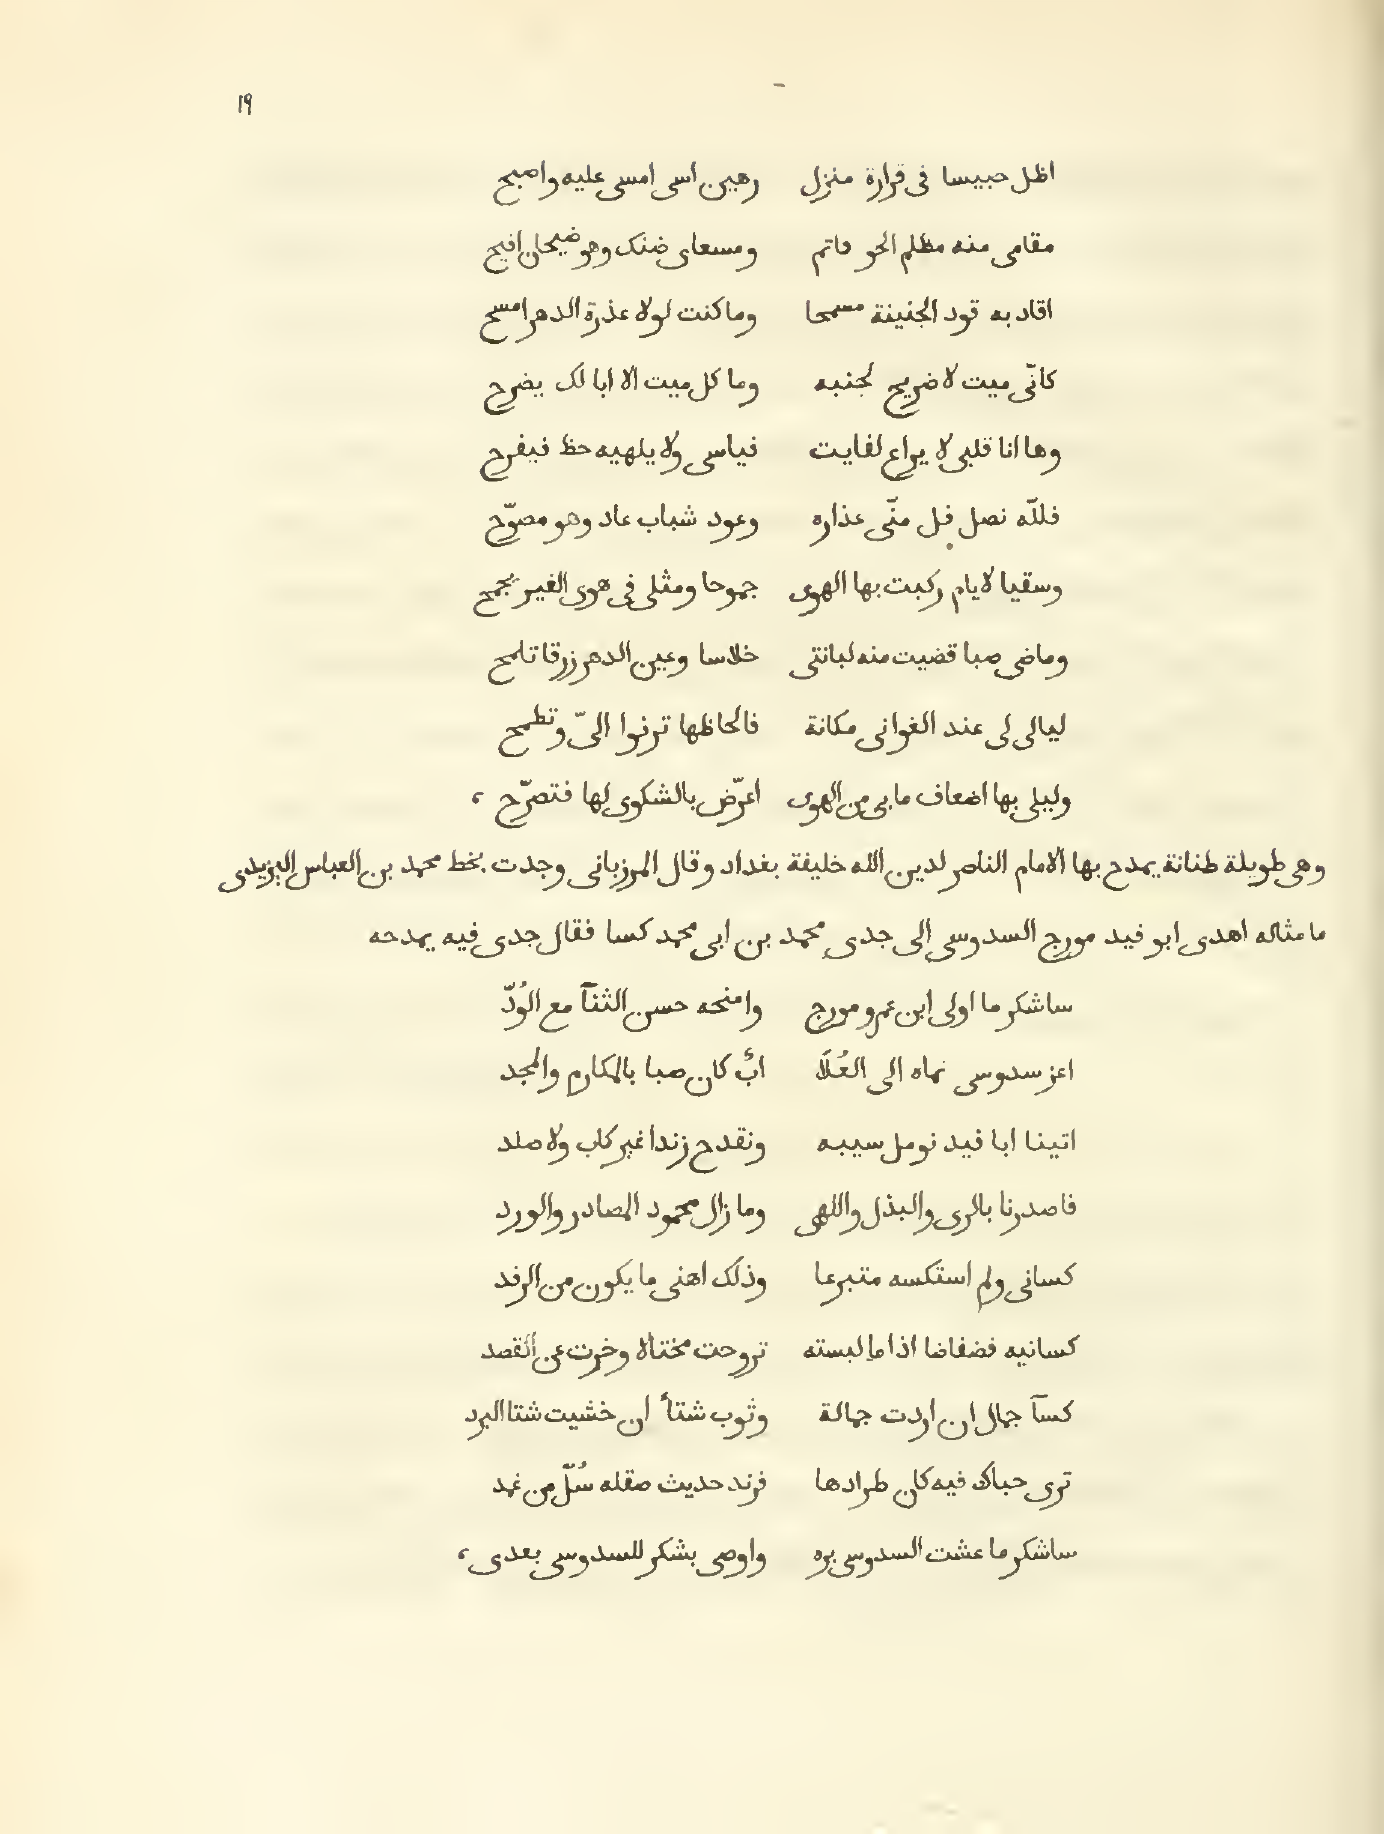 ١٩
اظل حبيسا فى قرارة منزل رهين اسى امسى عليه واصبح
مقامى منه مظلم الجو قاتم ومسعاى ضنك وهو ضيحان افيح
اقاد به قود الجنينة مسمحا وما كنت لولا عذرة الدهر امسح
كانّى ميت لا ضريح لجنبه وما كل ميت الا ابا لك يضرح
وها انا قلبى لا يراع لفايت فياسى ولا يلهيه حظ فيفرح
فللّه نصل فل منّى عذاره وعود شباب عاد وهو مصوّح
وسقيا لايام ركبت بها الهوى جموحا ومثلى فى هوى الغير يجمح
وماضى صبا قضيت منه لبانتى خلاسا وعين الدهر زرقا تلمح
ليالى لى عند الغوانى مكانة فالحاظها ترنوا الىّ وتطمح
وليلى بها اضعاف ما بى من الهوى اعرّض بالشكوى لها فتصرّح ،
وهى طويلة طنانة يمدح بها الامام الناصر لدين الله خليفة بغداد وقال المرزبانى وجدت بخط محمد بن العباس اليزيدى
ما مثاله اهدى ابو فيد مورج السدوسى الى جدى محمد بن ابى محمد كسا فقال جدى فيه يمدحه
ساشكر ما اولى ابن عمرو مورج وامنحه حسن الثنآ مع الوُدّ
اعز سدوسى نماه الى العُلَا ابٌ كان صبا بالمكارم والمجد
اتينا ابا فيد نومل سيبه ونقدح زندا غير كاب ولا صلد
فاصدرنا بالرى والبذل واللهى وما زال محمود المصادر والورد
كسانى ولم استكسه متبرعا وذلك اهنى ما يكون من الرفد
كسانيه فضفاضا اذا ما لبسته تروحت مختالا وخرت عن القصد
كسآ جمال ان اردت جمالة وثوب شتأ ان خشيت شتا البرد
ترى حباك فيه كان طرادها فرند حديث صقله سُلّ من غمد
ساشكر ما عشت السدوسى بره واوصى بشكر للسدوسى بعدى ،